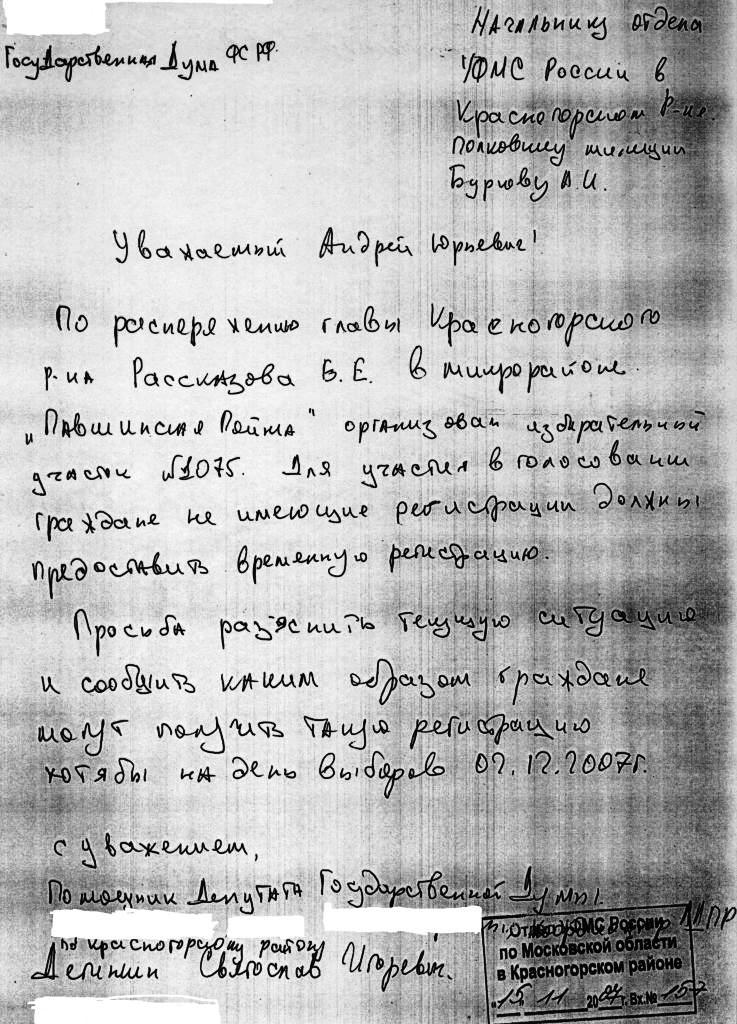 Государственная Дума ФС РФ.
Начальнику отдела
УФМС России в
Красногорском р-не.
полковнику милиции
Бургову А.И.
Уважаемый Андрей Юрьевич!
По распоряжению главы Красногорского
р-на Рассказова Б.Е. в микрорайоне
"Павшинская Пойма" организован избирательный
участок №1075. Для участия в голосовании
граждане не имеющие регистрации должны
предоставить временную регистрацию.
Просьба раз'яснить текущую ситуацию
и сообщить каким образом граждане
могут получить такую регистрацию
хотябы на день выборов 02.12.2007г.
С уважением,
Помощник Депутата Государственной Думы
ЛДПР
по Красногорскому району
Святослав Игоревич.
Отдел УФМС России
по Московской области
в Красногорском районе
"15" 11 2007г. Вх.№